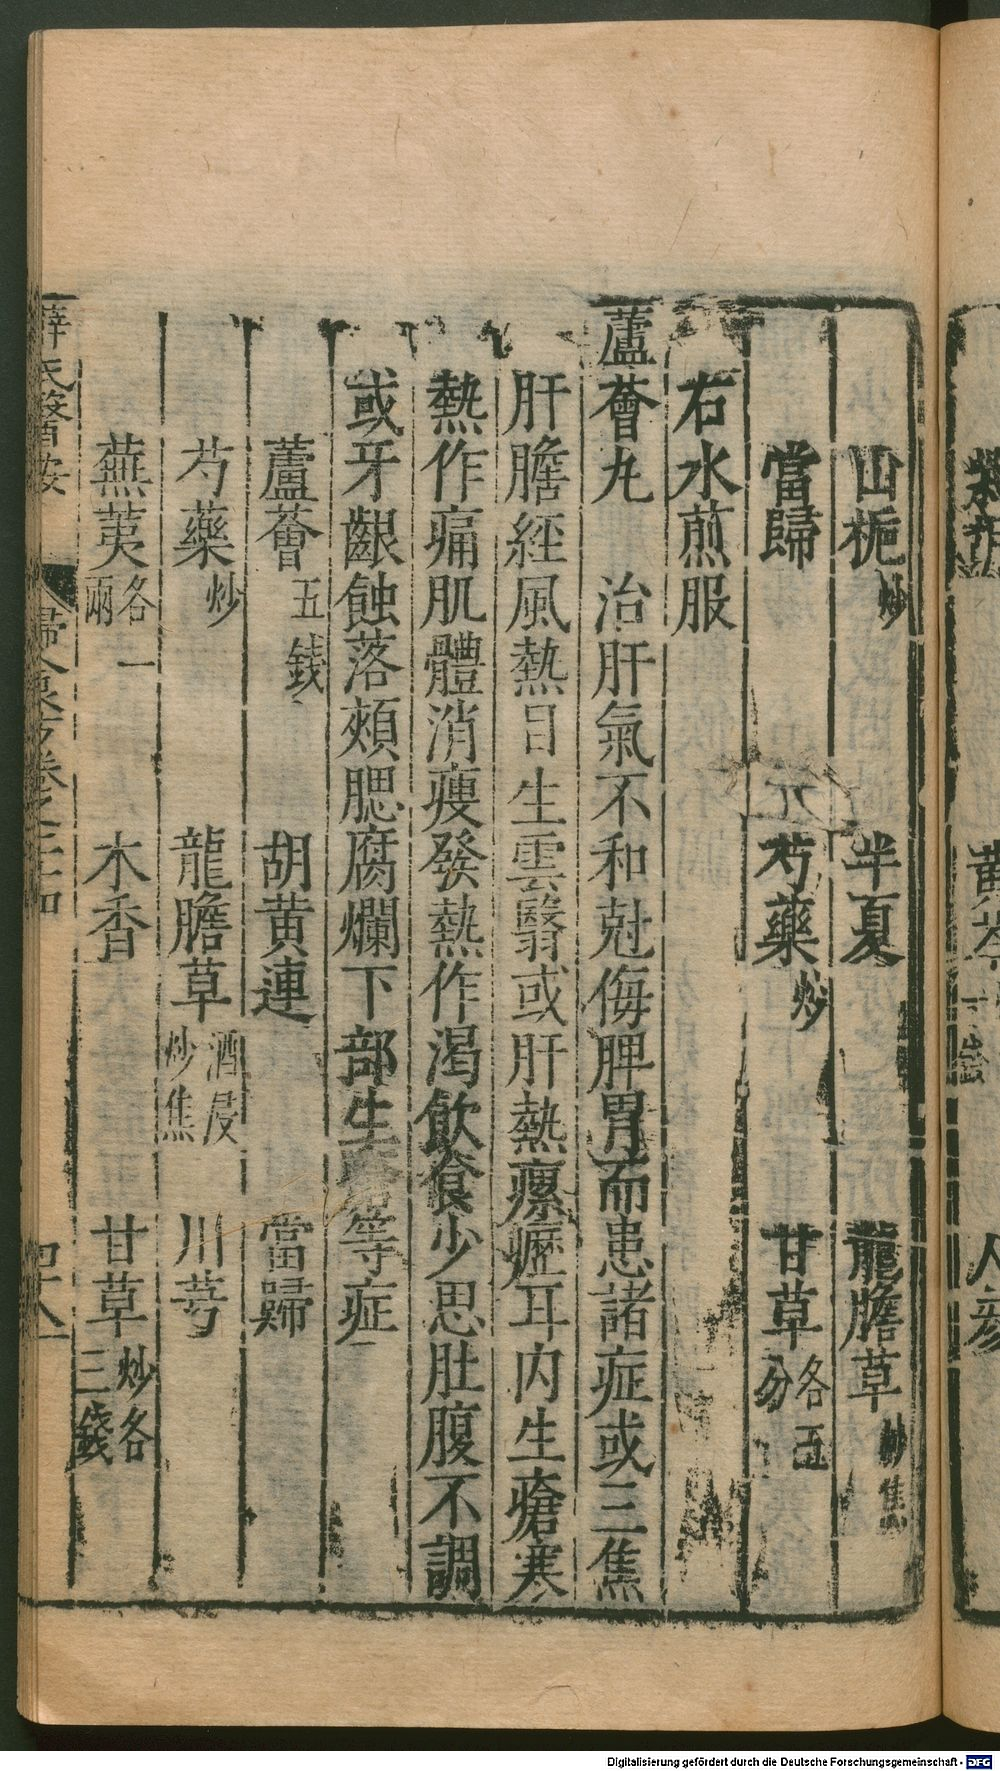 山梔炒　半夏　龍膽草炒焦
當歸　芍藥炒　甘草各五分
右水煎服
蘆薈丸　治肝氣不和尅侮脾胃而患諸症或三焦
肝膽經風熱日生雲翳或肝熱瘰癧耳内生瘡寒
熱作痛肌體消瘦發熱作渴飲食少思肚腹不調
或牙齦蝕落頰腮腐爛下部生瘡等症
蘆薈五錢　胡黄連　當歸
芍藥炒　龍膽草酒浸炒焦　川芎
蕪荑各一兩　木香　甘草炒各三錢
薛氏醫案　卷之二十四
Digitalisierung gefördert durch die Deutsche Forschungsgemeinschaft - DFG